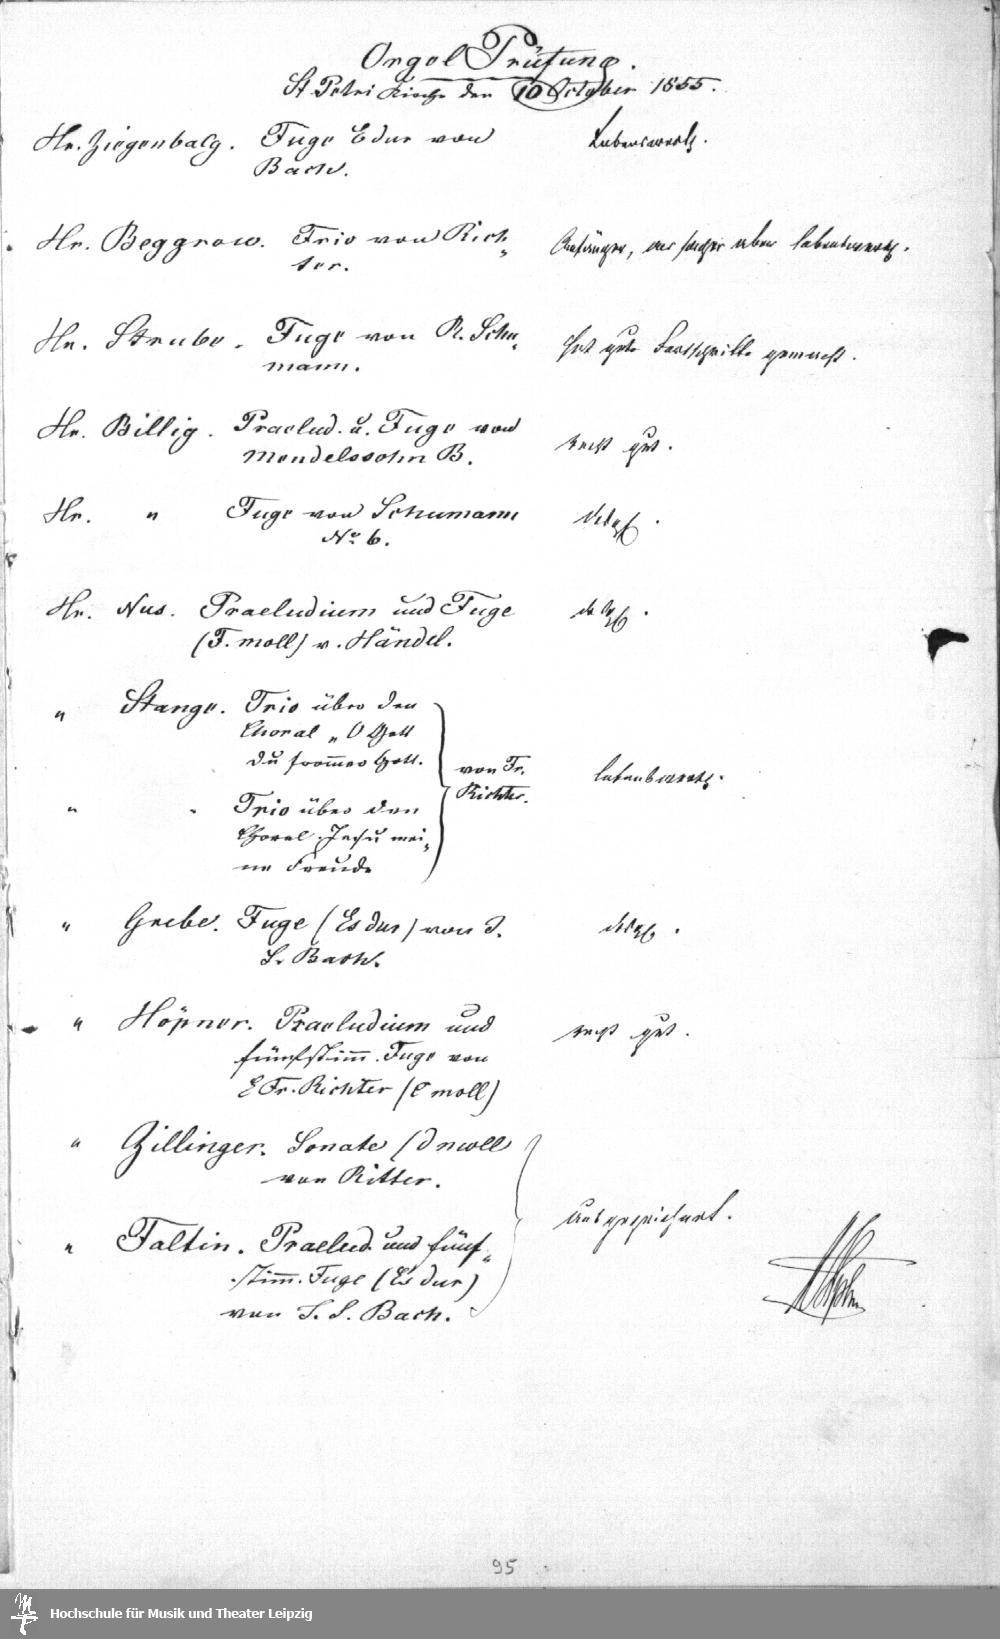 Orgel Prüfung.
St. Petri Kirche den 10 October 1855.
Hr. Ziegenbalg. Fuge Edur von Lobenswerth.
Bach.
Hr. Beggrow. Trio von Rich Anfänger, aber lobenswerth.
ter.
Hr. Strube. Fuge von R. Schu Hat gute Fortschritte gemacht.
mann.
Hr. Billig. Praelud. u. Fuge von recht gut.
Mendelssohn B.
Hr. " Fuge von Schumann
No 6.
Hr. Nus. Praeludium und Fuge
(F. moll) v. Händel.
" Stange. Trio über den
Choral „O Gott
du frommer Gott. von Fr.
Richter. lobenswerth.
" " Trio über den
Choral. Jesu mei-
ne Freude
" Grebe. Fuge (Es dur) von J.
S. Bach.
" Höpner. Praeludium und recht gut.
fünfstimm. Fuge von
E Fr. Richter (C moll)
" Zillinger. Sonate (D moll
von Ritter.
Ausgezeichnet.
" Faltin. Praelud. und fünf-
stimm. Fuge (Es dur)
von J. S. Bach.
95
Hochschule für Musik und Theater Leipzig